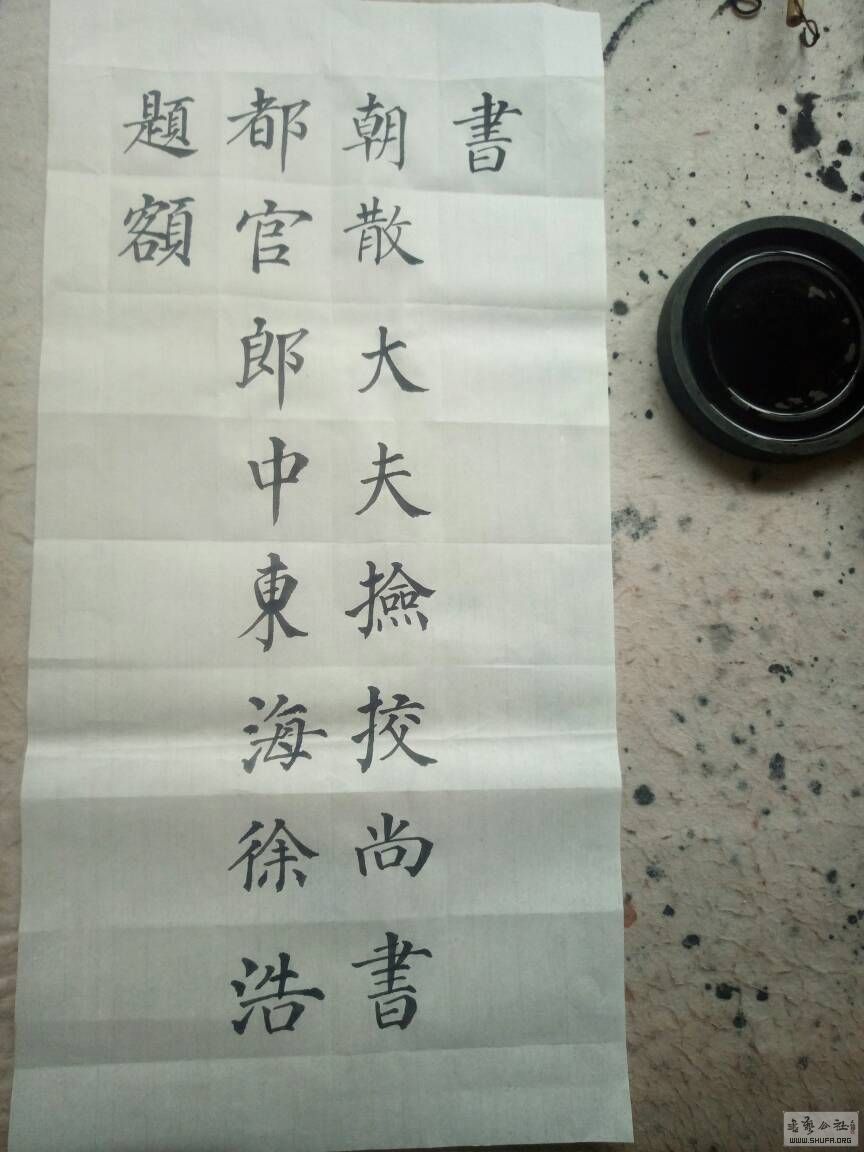 書
朝散大夫撿挍尚書
都官郎中東海徐浩
題額
书艺公社
WWW.SHUFA.ORG